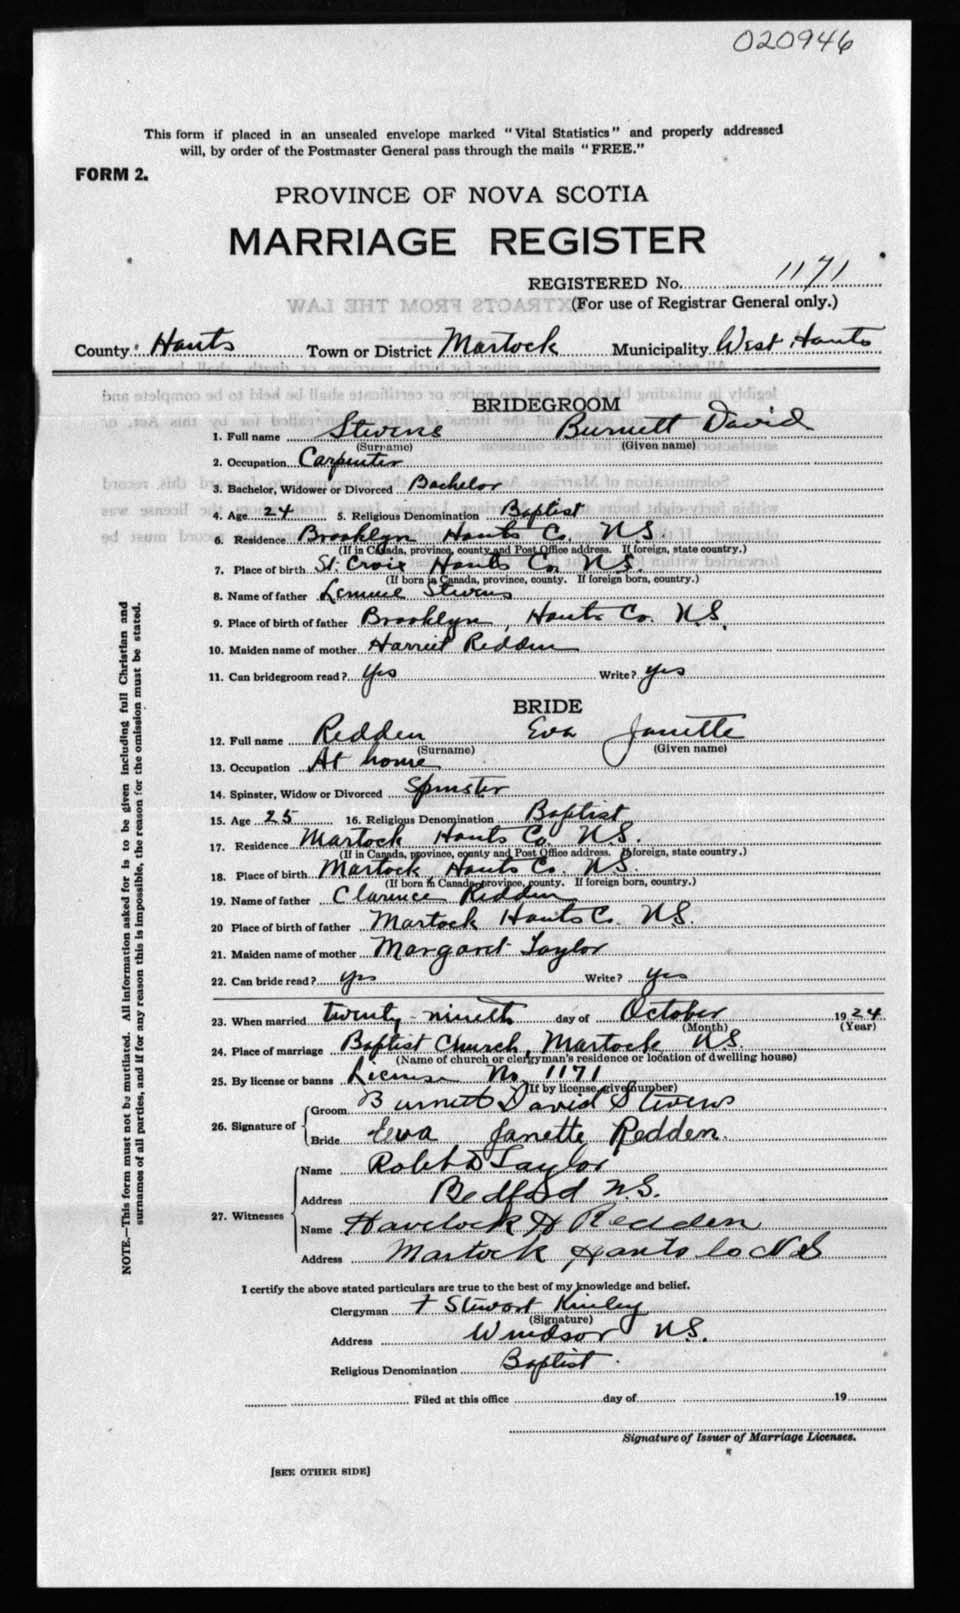 020946
This form if placed in an unsealed envelope marked "Vital Statistics" and properly addressed
will, by order of the Postmaster General pass through the mails "FREE."
FORM 2.
PROVINCE OF NOVA SCOTIA
MARRIAGE REGISTER
REGISTERED No. 1171
(For use of Registrar General only.)
EXTRACTS FROM THE LAW
County Hants Town or District Martock Municipality West Hants
BRIDEGROOM
1. Full name Stevens Burnett David
(Surname) (Given name)
2. Occupation Carpenter
3. Bachelor, Widower or Divorced Bachelor
4. Age 24 5. Religious Denomination Baptist
6. Residence Brooklyn Hants Co. N.S.
(If in Canada, province, county and Post Office address. If foreign, state country.)
7. Place of birth St. Croix Hants Co. N.S.
(If born in Canada, province, county. If foreign born, country.)
8. Name of father Lemuel Stevens
9. Place of birth of father Brooklyn, Hants Co. N.S.
10. Maiden name of mother Harriet Redden
11. Can bridegroom read? Yes Write? yes
BRIDE
12. Full name Redden Eva Janette
(Surname) (Given name)
13. Occupation At home
14. Spinster, Widow or Divorced Spinster
15. Age 25 16. Religious Denomination Baptist
17. Residence Martock Hants Co. N.S.
(If in Canada, province, county and Post Office address. If foreign, state country.)
18. Place of birth Martock, Hants Co. N.S.
(If born in Canada, province, county. If foreign born, country.)
19. Name of father Clarence Redden
20 Place of birth of father Martock Hants Co. N.S.
21. Maiden name of mother Margaret Taylor
22. Can bride read? yes Write? yes
23. When married twenty-nineth day of October 1924
(Month) (Year)
24. Place of marriage Baptist Church, Martock N.S.
(Name of church or clergyman's residence or location of dwelling house)
25. By license or banns License No. 1171
(If by license, give number)
26. Signature of
Groom Burnett David Stevens
Bride Eva Janette Redden.
27. Witnesses
Name Robt D Taylor
Address Bedford N.S.
Name Havelock H Redden
Address Martock Hants Co N.S
I certify the above stated particulars are true to the best of my knowledge and belief.
Clergyman F Stewart Kinley
(Signature)
Address Windsor N.S.
Religious Denomination Baptist.
Filed at this office day of 19
Signature of Issuer of Marriage Licenses.
[SEE OTHER SIDE]
NOTE.—This form must not be mutilated. All information asked for is to be given including full Christian and
surnames of all parties, and if for any reason this is impossible, the reason for the omission must be stated.